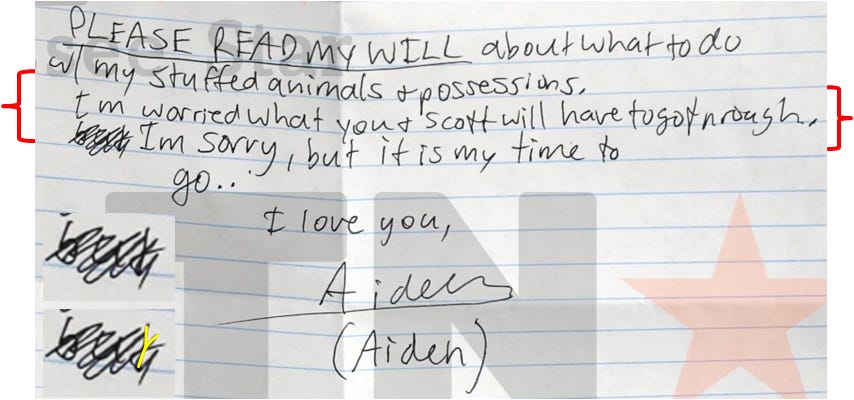 PLEASE READ MY WILL about what to do
w/ my stuffed animals + possessions.
I'm worried what you + Scott will have to go through.
Im sorry, but it is my time to
go..
I love you,
Aiden
(Aiden)
TN